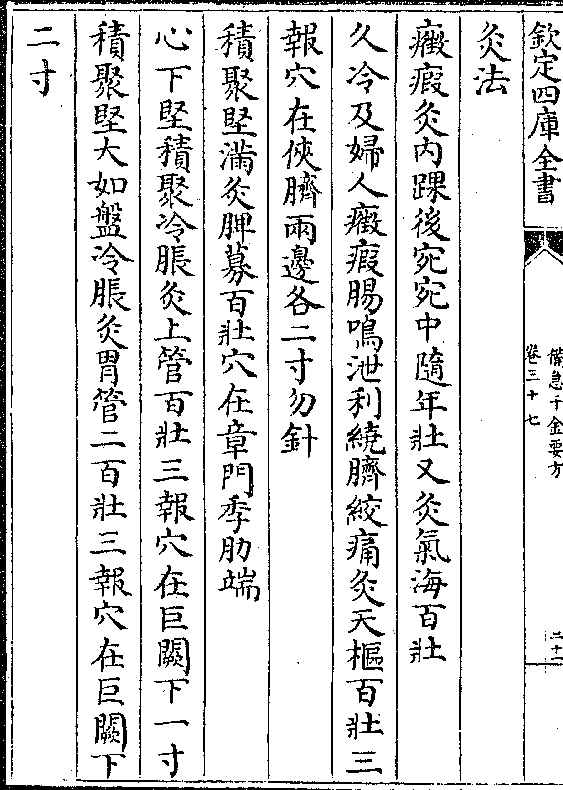 欽定四庫全書
備急千金要方
卷三十七
二十一
灸法
癥瘕灸內踝後宛宛中隨年壯又灸氣海百壯
久冷及婦人癥瘕腸鳴泄利繞臍絞痛灸天樞百壯三
報穴在俠臍兩邊各二寸勿針
積聚堅滿灸脾募百壯穴在章門季肋端
心下堅積聚冷脹灸上管百壯三報穴在巨闕下一寸
積聚堅大如盤冷脹灸胃管二百壯三報穴在巨闕下
二寸